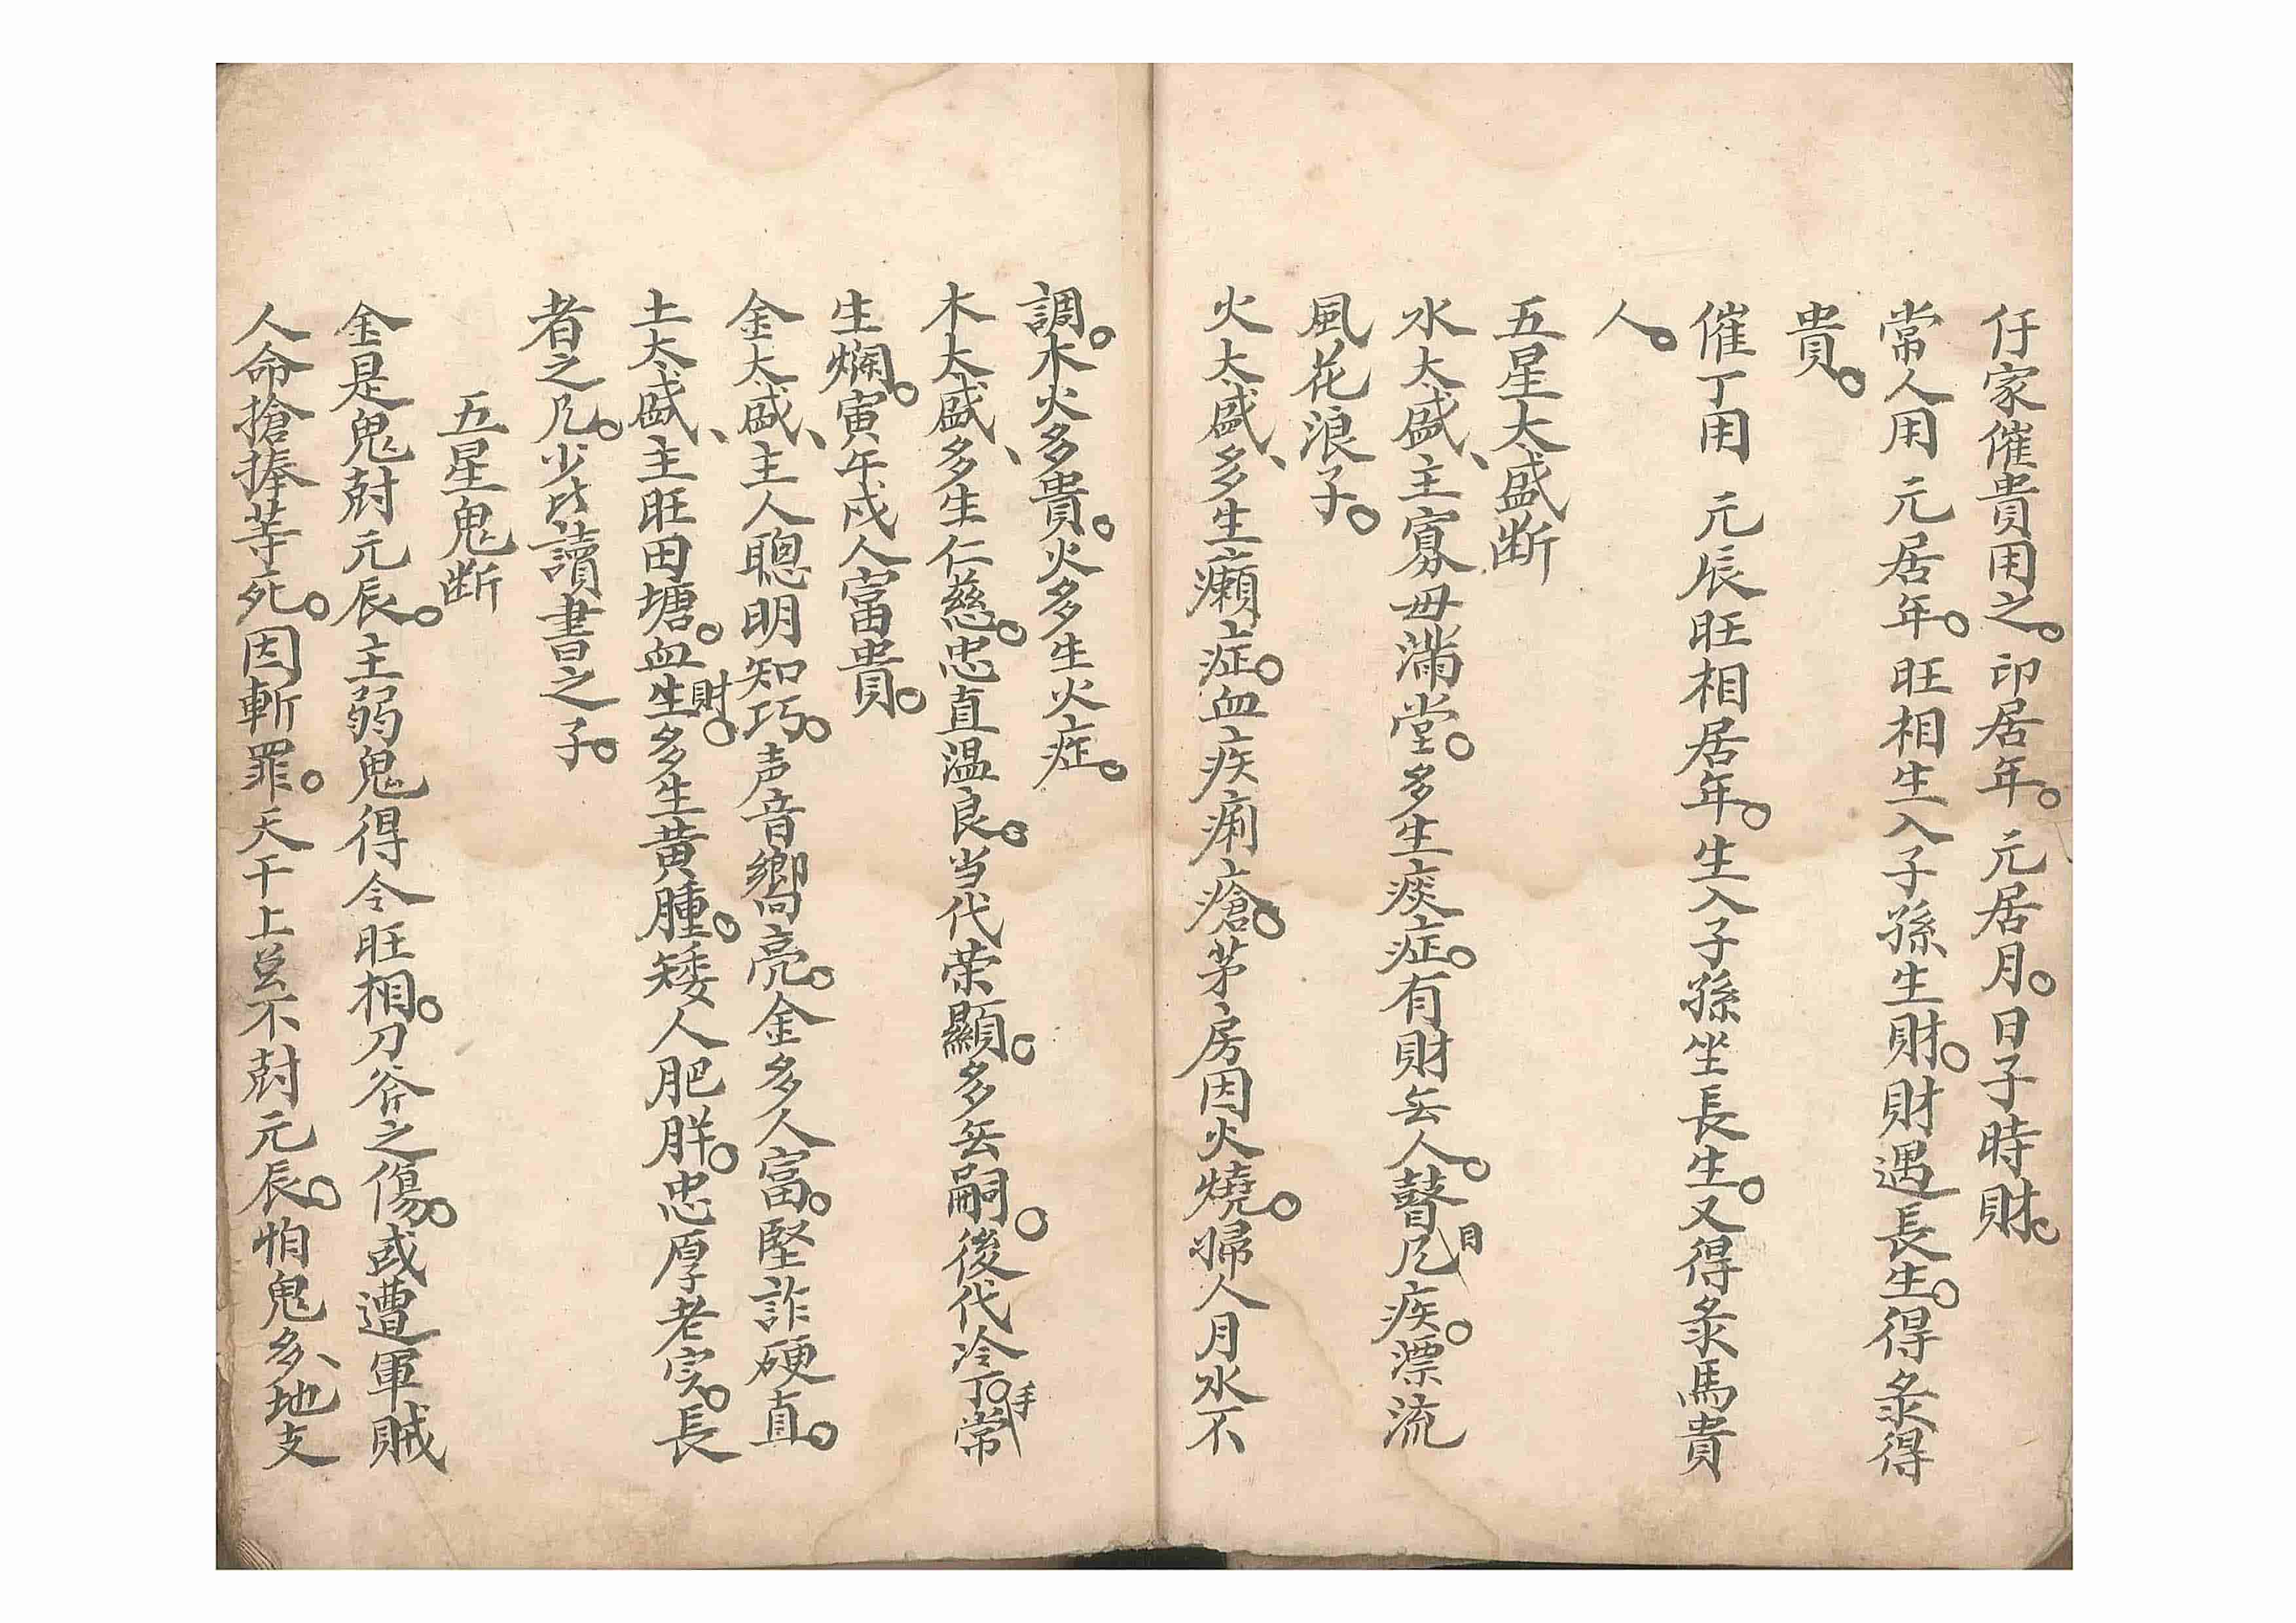 仔家催貴用之。印居年。元居月。日子時財。
常人用 元居年。旺相生入子孫生財。財遇長生。得彔得
貴。
催丁用 元辰旺相居年。生入子孫坐長生。又得彔馬貴
人。
五星太盛断
水太盛、主寡毋滿堂。多生痰症。有財無人。瞽目凡疾。漂流
風花浪子。
火太盛、多生癩症。血疾痢瘡。茅房因火燒。婦人月水不
調。木火多貴。火多生火症。
木太盛、多生仁慈。忠直温良。当代荣顯。多無嗣。後代冷丁。手常
生爛。寅午戍人富貴。
金太盛、主人聰明知巧。声音響亮。金多人富。堅詐硬直。
土太盛、主旺田塘。血財生。多生黄腫。矮人肥胖。忠厚老实。長
者之凡。少比讀書之子。
五星鬼断
金是鬼尅元辰。主弱鬼得令旺相。刀斧之傷。或遭軍賊
人命搶捧等死。因斬罪。天干上不尅元辰。怕鬼多、地支